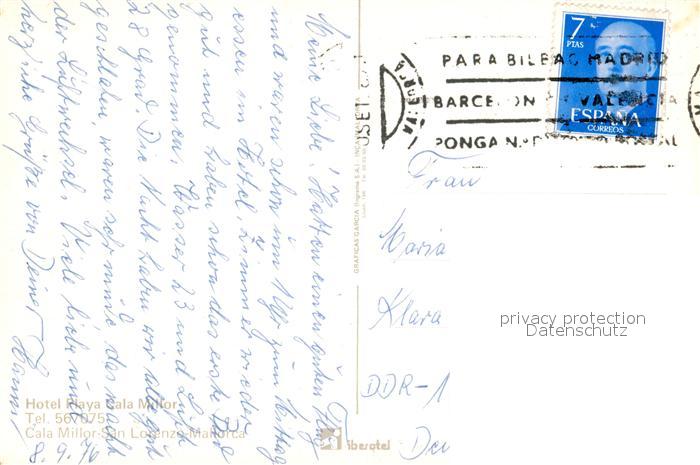 Meine Liebe! Hatten einen guten Flug
und waren schon um 1 Uhr zum Mittag
essen im Hotel. Zimmer wieder
gut und haben schon das erste Bad
genommen, Wasser 23 und Luft
28 Grad. Die Nacht haben wir alle gut
geschlafen waren sehr müde das macht
der Luftwechsel. Viele liebe und
herzliche Grüße von Deiner
8.9.76
Hotel Playa Cala Millor
Tel. 567075
Cala Millor-San Lorenzo-Mallorca
iberotel
GRAFICAS GARCIA
7
PTAS
ESPAÑA
CORREOS
PARA BILBAO MADRID
BARCELONA Y VALENCIA
PONGA N.º DISTRITO POSTAL
Frau
Maria
Klara
DDR-1
privacy protection
Datenschutz